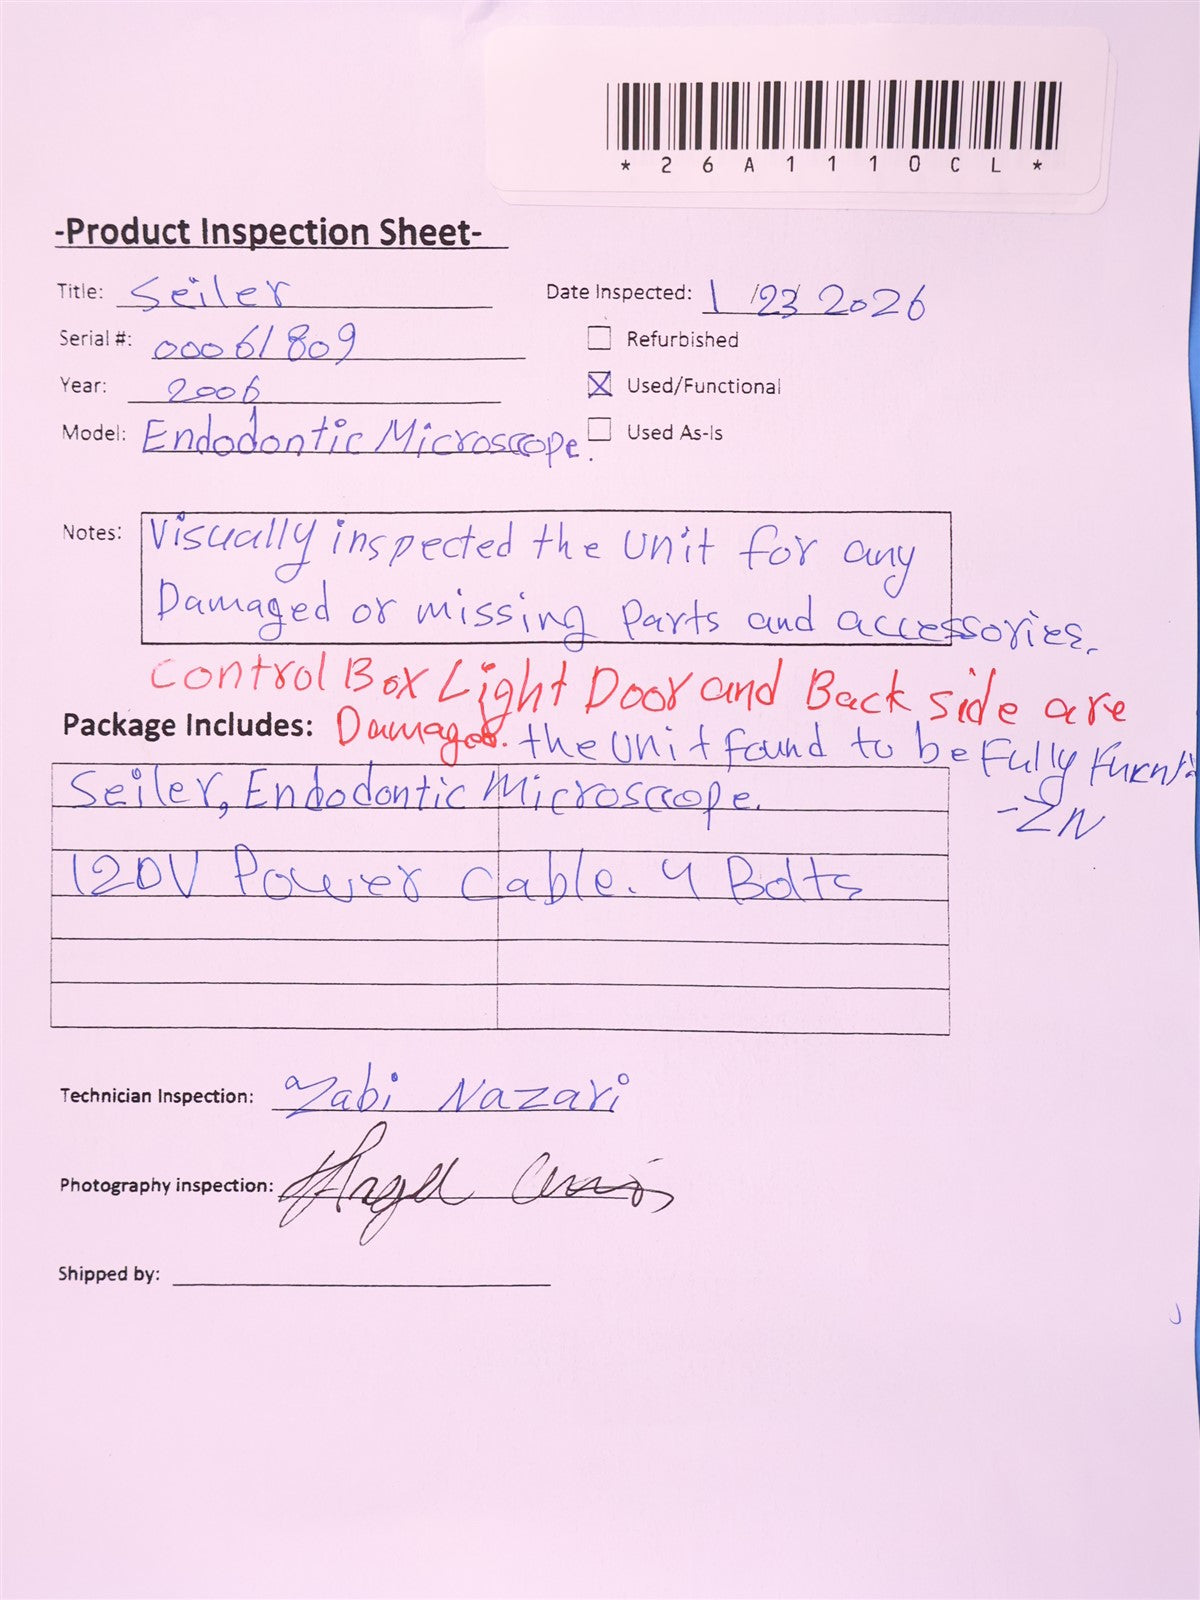 *26A1110CL*
-Product Inspection Sheet-
Title: Seiler
Date Inspected: 1/23/2026
Serial #: 00061809
Refurbished
Year: 2006
Used/Functional
Model: Endodontic Microscope.
Used As-Is
Notes: Visually inspected the unit for any
Damaged or missing Parts and accessories.
Control Box Light Door and Back side are
Package Includes: Damaged. the unit found to be Fully
-ZN
Seiler, Endodontic Microscope.
120V Power Cable. 4 Bolts
Technician Inspection: Zabi Nazari
Photography inspection: Angel
Shipped by: